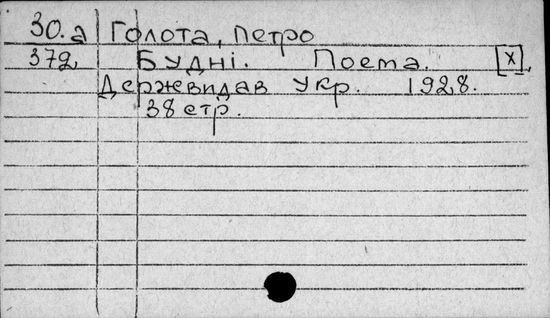 30.а Голота, Петро
372 Будні. Поема. [х],
Держвидав Укр. 1928.
38 стр.